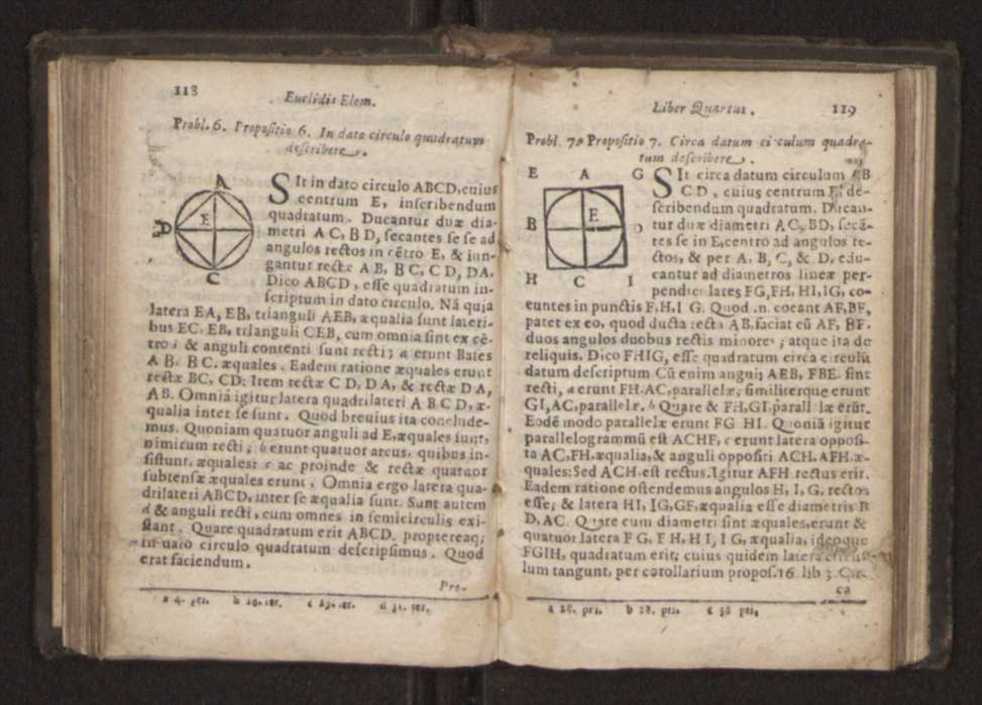 118
Euclidis Elem.
Probl. 6. Propositio 6. In dato circulo quadratum
describere.
A
E
D
C
SIt in dato circulo ABCD, cuius
centrum E, inscribendum
quadratum. Ducantur duæ dia-
metri A C, B D, secantes se se ad
angulos rectos in cẽtro E, & iun-
gantur rectæ A B, B C, C D, DA.
Dico ABCD, esse quadratum in-
scriptum in dato circulo. Nã quia
latera EA, EB, trianguli AEB, æqualia sunt lateri-
bus EC, EB, trianguli CEB, cum omnia sint ex cẽ-
tro; & anguli contenti sunt recti; a erunt Bases
A B, B C, æquales. Eadem ratione æquales erunt
rectæ BC, CD; Item rectæ C D, D A, & rectæ D A,
AB. Omniã igitur latera quadrilateri A B C D, æ-
qualia inter se sunt. Quod breuius ita conclude-
mus. Quoniam quatuor anguli ad E, æquales sunt,
nimirum recti; b erunt quatuor arcus, quibus in-
sistunt, æquales; c ac proinde & rectæ quatuor
subtensæ æquales erunt. Omnia ergo latera qua-
drilateri ABCD, inter se æqualia sunt. Sunt autem
d & anguli recti, cum omnes in semicirculis exi-
stant. Quare quadratum erit ABCD, proptereaq;
in dato circulo quadratum descripsimus. Quod
erat faciendum.
Pro-
a 4. pri. b 26. ter. c 29. ter. d 31. ter.
Liber Quartus. 119
Probl. 7. Propositio 7. Circa datum circulum quadra-
tum describere.
E A G
B E D
H C I
SIt circa datum circulum AB
C D, cuius centrum E, de-
scribendum quadratum. Ducan-
tur duæ diametri A C, BD, secã-
tes se in E, centro ad angulos re-
ctos, & per A, B, C, & D, edu-
cantur ad diametros lineæ per-
pendiculares FG, FH, HI, IG, co-
euntes in punctis F, H, I G. Quod .n. coeant AF, BF,
patet ex eo, quod ducta recta AB, faciat cũ AF, BF,
duos angulos duobus rectis minores; atque ita de
reliquis. Dico FHIG, esse quadratum circa circulũ
datum descriptum Cũ enim anguli AEB, FBE. sint
recti, a erunt FH, AC, parallelæ; similiterque erunt
GI, AC, parallelæ. b Quare & FH, GI, parallelæ erũt.
Eodẽ modo parallelæ erunt FG HI. Quoniã igitur
parallelogrammũ est ACHF, c erunt latera opposi-
ta AC, FH, æqualia, & anguli oppositi ACH, AFH, æ-
quales: Sed ACH, est rectus. Igitur AFH rectus erit.
Eadem ratione ostendemus angulos H, I, G, rectos
esse; & latera HI, IG, GF, æqualia esse diametris B
D, AC. Quare cum diametri sint æquales, erunt &
quatuor latera F G, F H, H I, I G, æqualia, ideoque
FGIH, quadratum erit; cuius quidem latera circu-
lum tangunt, per corollarium propos. 16. lib 3. Cir-
ca
a 28. pri. b 28. pri. c 34 pri.